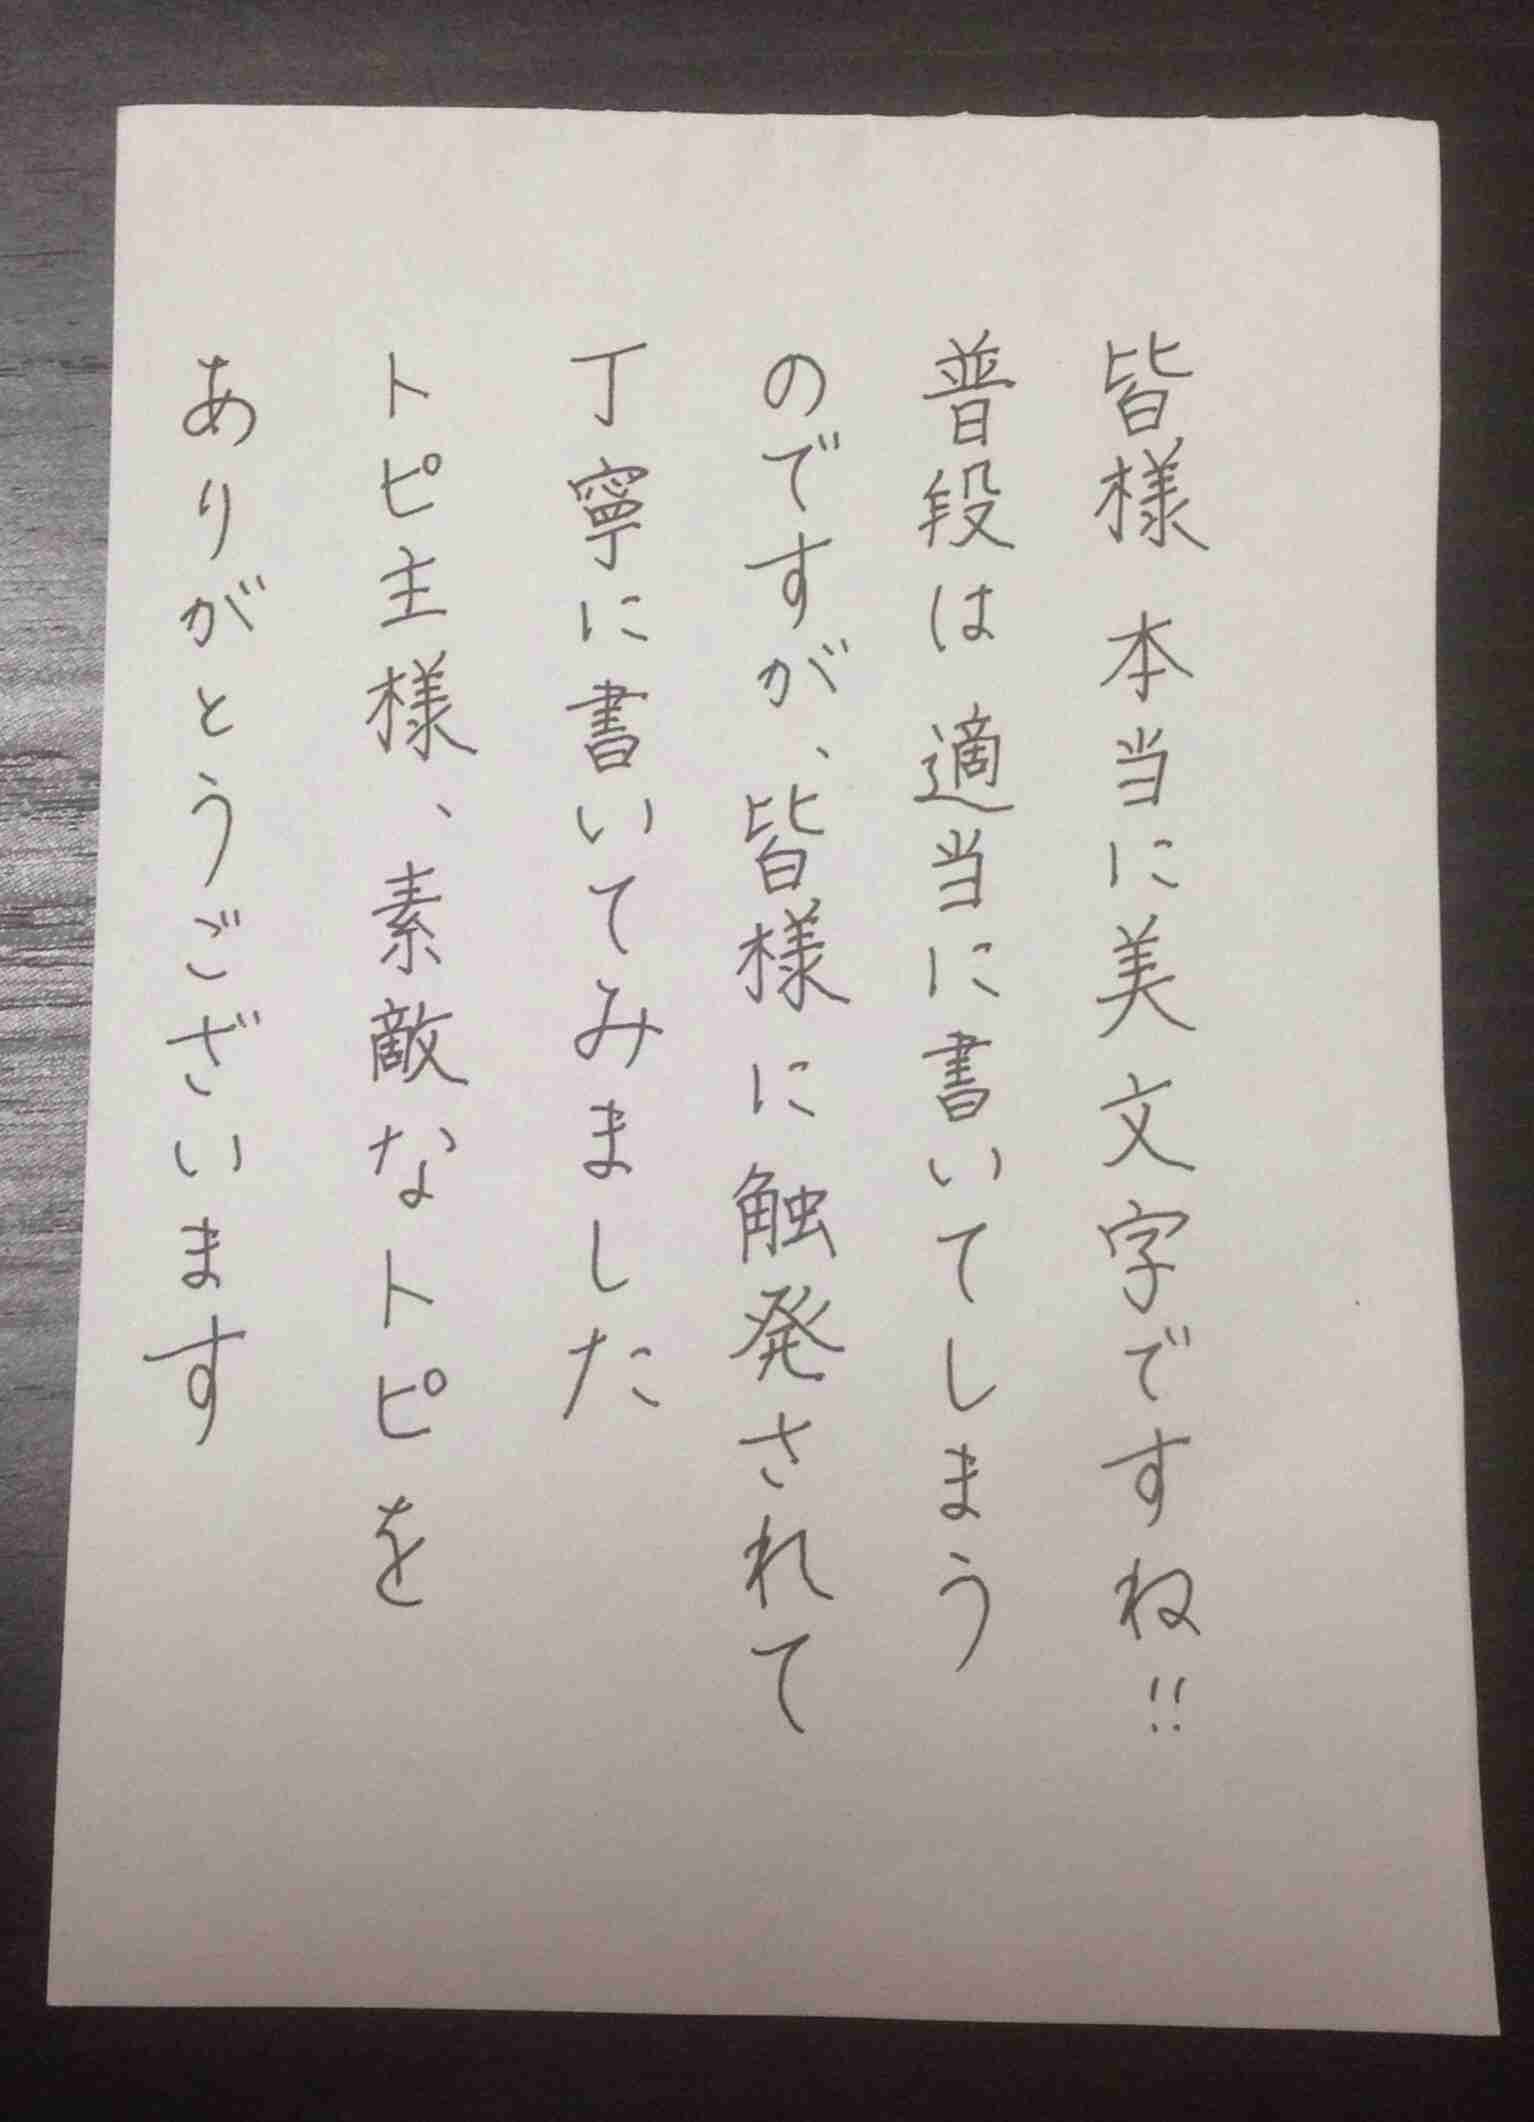 皆様 本当に美文字ですね!!
普段は適当に書いてしまう
のですが、皆様に触発されて
丁寧に書いてみました
トピ主様、素敵なトピを
ありがとうございます